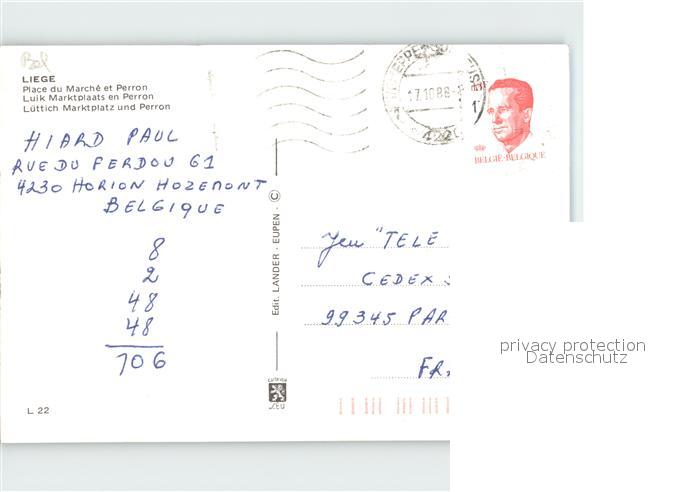 Bel
LIEGE
Place du Marché et Perron
Luik Marktplaats en Perron
Lüttich Marktplatz und Perron
HIARD PAUL
RUE DU FERDOU 61
4230 HORION HOZEMONT
BELGIQUE
8
2
48
48
106
L 22
Edit. LANDER · EUPEN · ©
17.10.88
1
BELGIË·BELGIQUE
Jeu "TELE
CEDEX
99345 PAR
FR.
privacy protection
Datenschutz